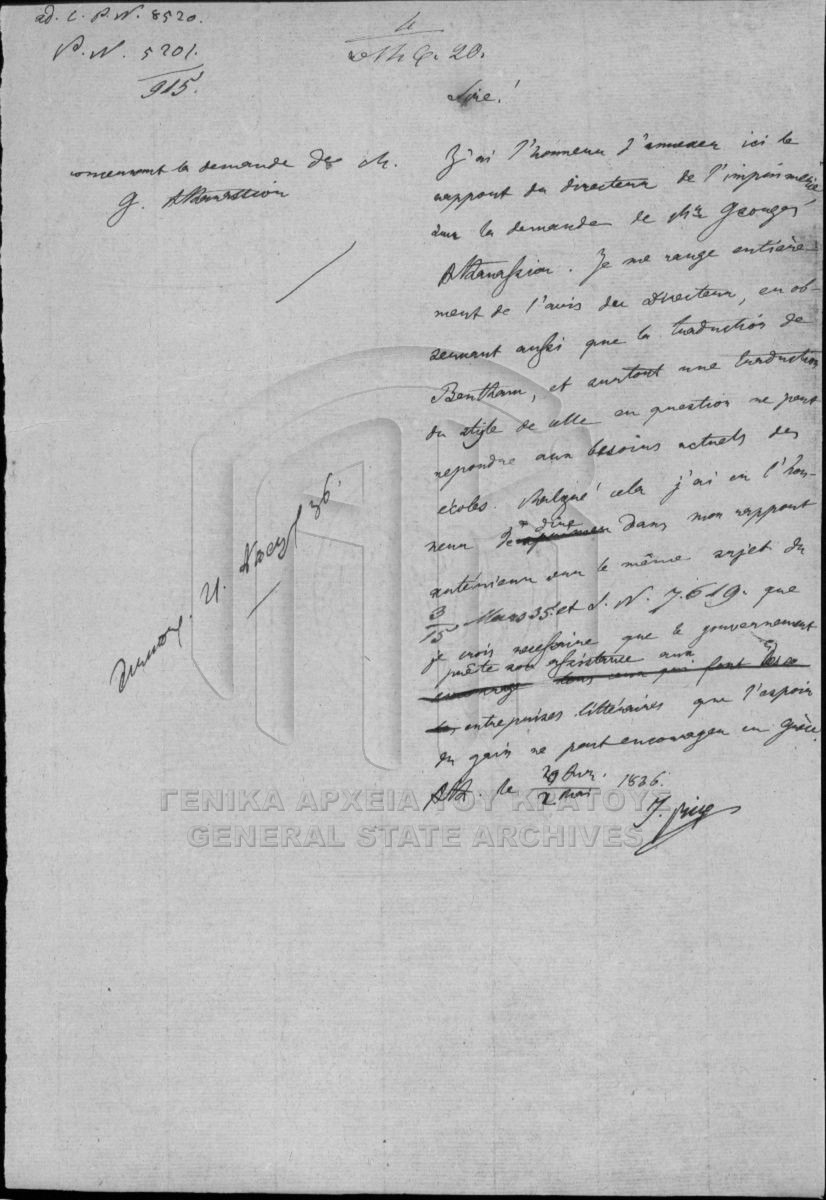 ad. C. P. N. 8520.
P. N. 5201.
915.
4
20.
Sire!
concernant la demande de M.
G. Athanassion
J'ai l'honneur d'annexer ici le
rapport du directeur de l'imprimerie
sur la demande de Mr Georges
Athanassiou. Je me range entière-
ment de l'avis du Directeur, en ob-
servant aussi que la traduction de
Bentham, et surtout une traduction
du style de celle en question ne peut
repondre aux besoins actuels des
écoles. Malgré cela j'ai eu l'hon-
neur de dire dans mon rapport
antérieur sur le même sujet du
3/15 Mars 35. et S. N. 7.619. que
je crois necessaire que le gouvernement
prête son assistance aux
entreprises littéraires que l'espoir
du gain ne peut encourager en Grèce.
Ath. le 29 Avr. / 2 Mai 1836.
36.
ΓΕΝΙΚΑ ΑΡΧΕΙΑ ΤΟΥ ΚΡΑΤΟΥΣ
GENERAL STATE ARCHIVES